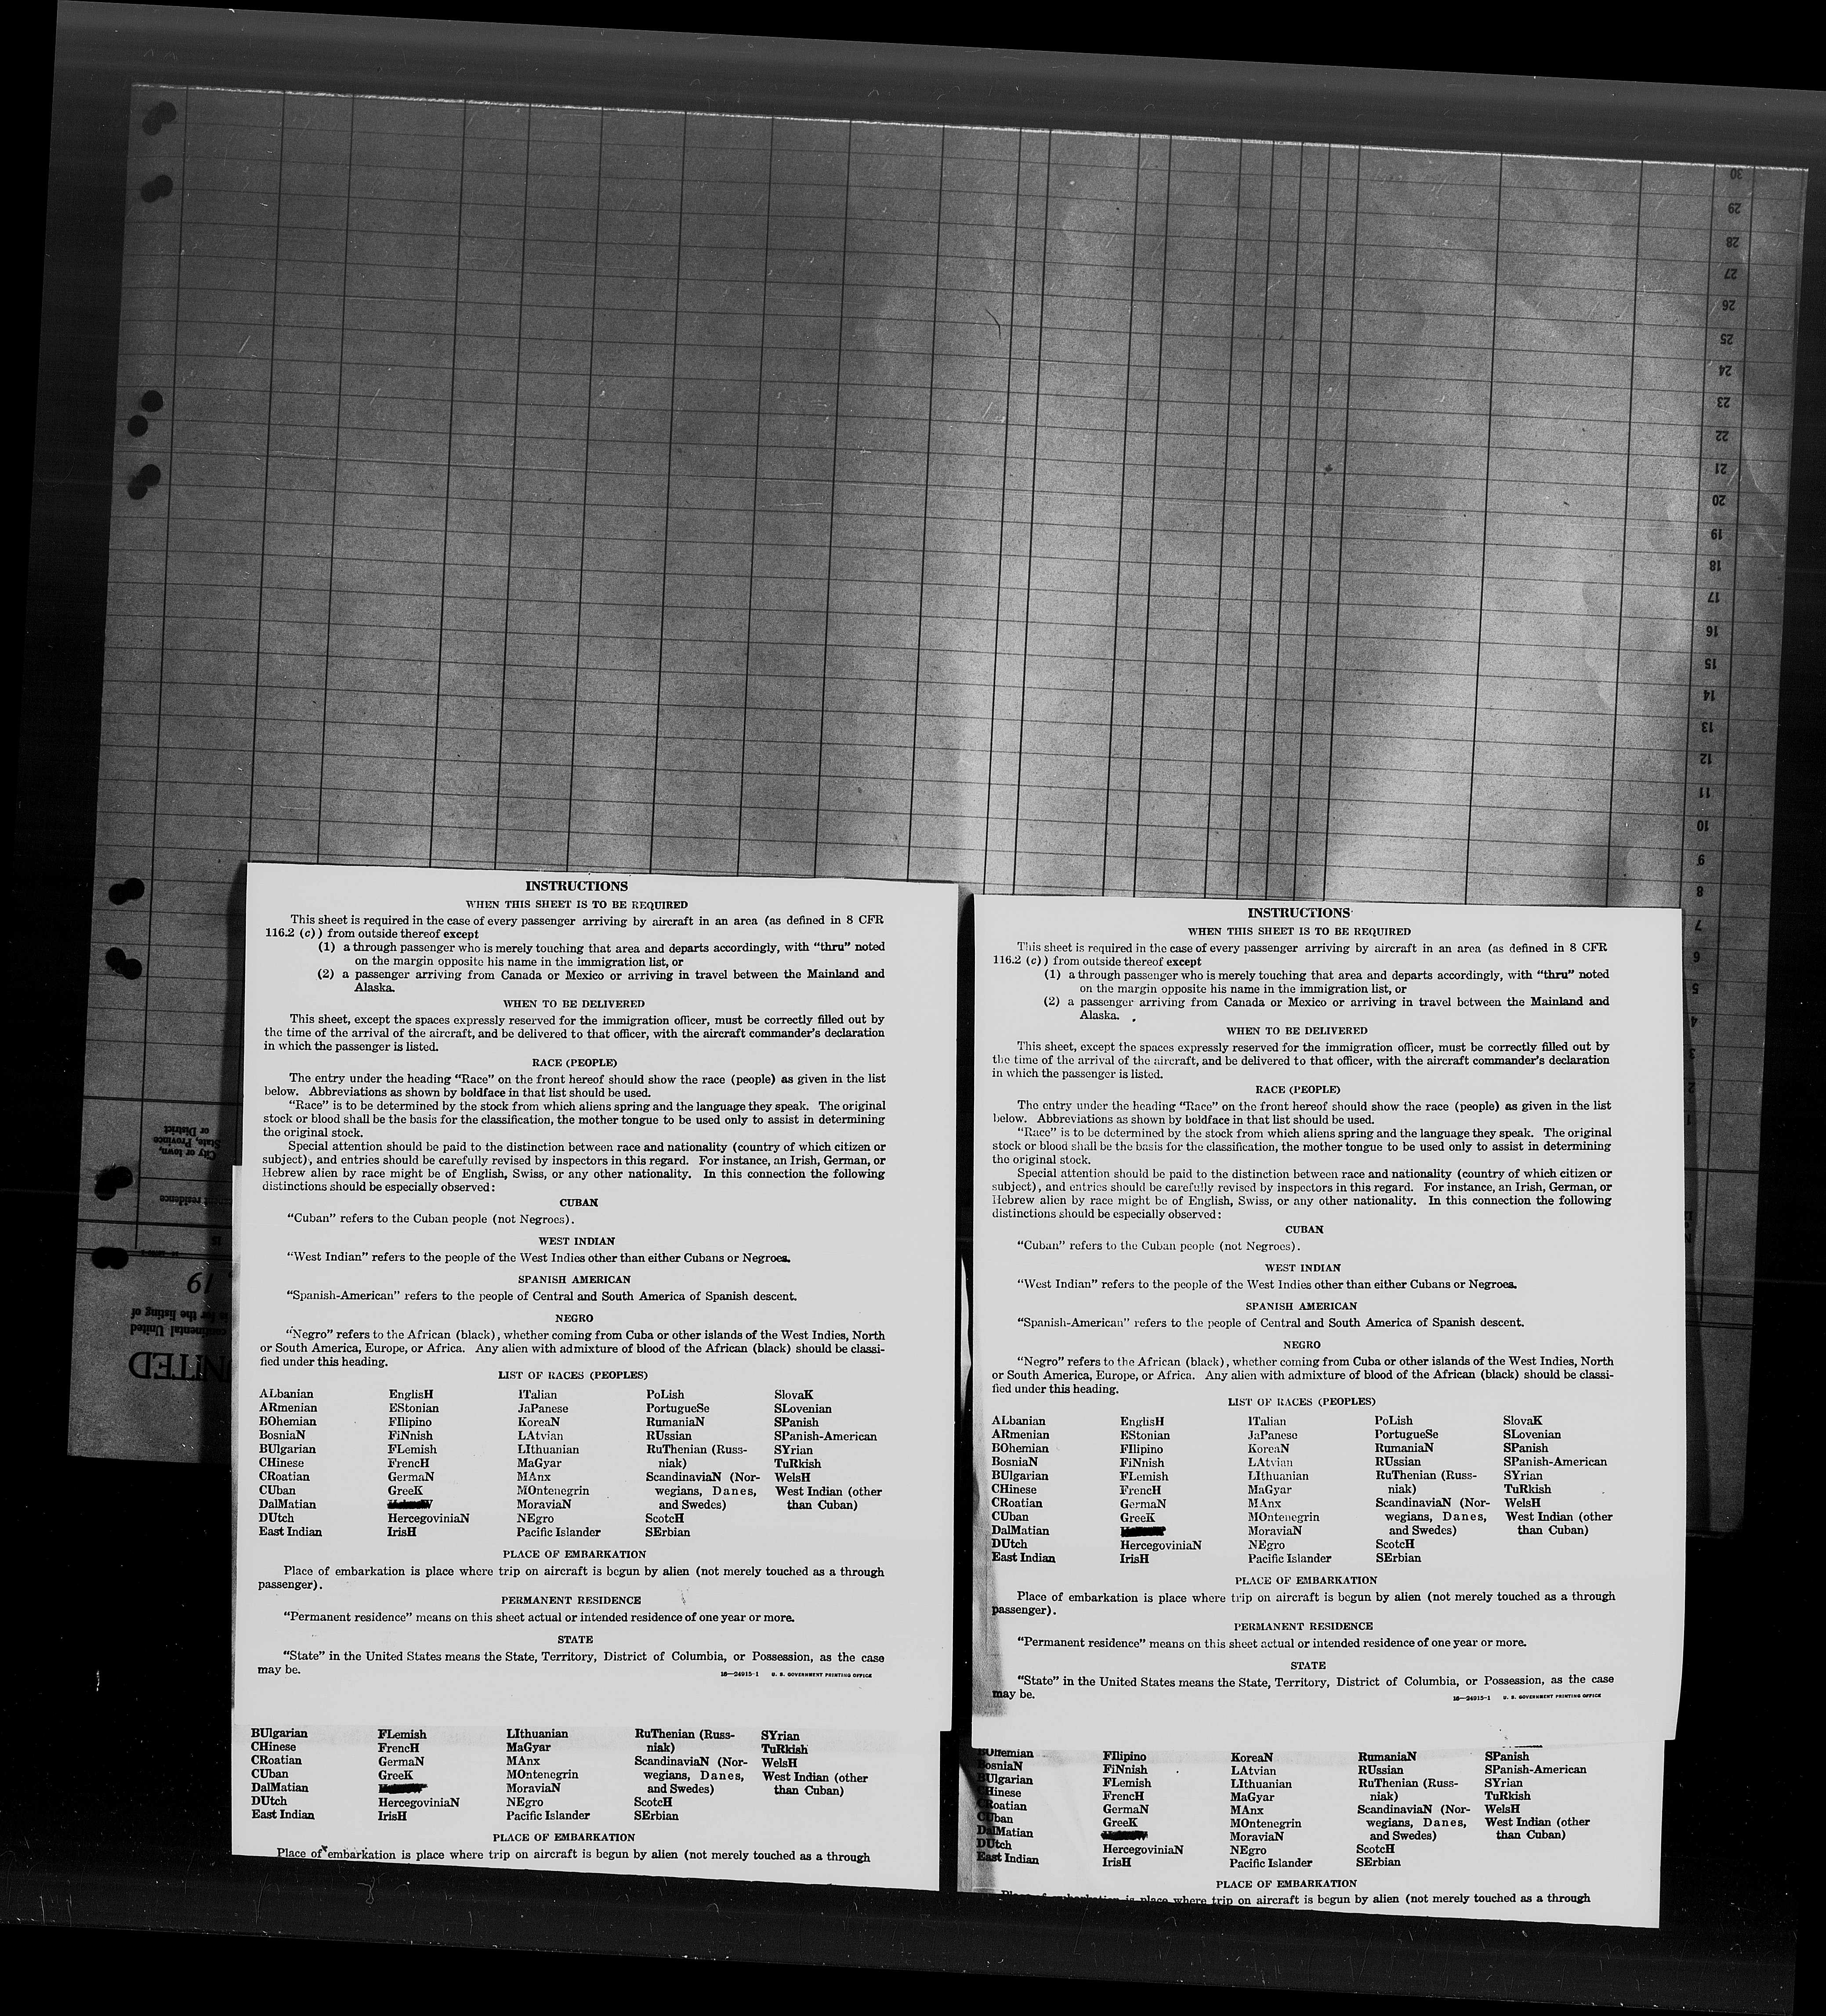 30
29
28
27
26
25
24
23
22
21
20
19
18
17
16
15
14
13
12
11
10
9
8
7
6
5
4
3
2
1
City or town,
State, Province
or District
residence
15
, 19
is for the listing of
continental United
UNITED
INSTRUCTIONS
WHEN THIS SHEET IS TO BE REQUIRED
This sheet is required in the case of every passenger arriving by aircraft in an area (as defined in 8 CFR
116.2 (c)) from outside thereof except
(1) a through passenger who is merely touching that area and departs accordingly, with “thru” noted
on the margin opposite his name in the immigration list, or
(2) a passenger arriving from Canada or Mexico or arriving in travel between the Mainland and
Alaska.
WHEN TO BE DELIVERED
This sheet, except the spaces expressly reserved for the immigration officer, must be correctly filled out by
the time of the arrival of the aircraft, and be delivered to that officer, with the aircraft commander’s declaration
in which the passenger is listed.
RACE (PEOPLE)
The entry under the heading “Race” on the front hereof should show the race (people) as given in the list
below. Abbreviations as shown by boldface in that list should be used.
“Race” is to be determined by the stock from which aliens spring and the language they speak. The original
stock or blood shall be the basis for the classification, the mother tongue to be used only to assist in determining
the original stock.
Special attention should be paid to the distinction between race and nationality (country of which citizen or
subject), and entries should be carefully revised by inspectors in this regard. For instance, an Irish, German, or
Hebrew alien by race might be of English, Swiss, or any other nationality. In this connection the following
distinctions should be especially observed:
CUBAN
“Cuban” refers to the Cuban people (not Negroes).
WEST INDIAN
“West Indian” refers to the people of the West Indies other than either Cubans or Negroes.
SPANISH AMERICAN
“Spanish-American” refers to the people of Central and South America of Spanish descent.
NEGRO
“Negro” refers to the African (black), whether coming from Cuba or other islands of the West Indies, North
or South America, Europe, or Africa. Any alien with admixture of blood of the African (black) should be classi-
fied under this heading.
LIST OF RACES (PEOPLES)
ALbanian EnglisH ITalian PoLish SlovaK
ARmenian EStonian JaPanese PortugueSe SLovenian
BOhemian FIlipino KoreaN RumaniaN SPanish
BosniaN FiNnish LAtvian RUssian SPanish-American
BUlgarian FLemish LIthuanian RuThenian (Russ- SYrian
CHinese FrencH MaGyar niak) TuRkish
CRoatian GermaN MAnx ScandinaviaN (Nor- WelsH
CUban GreeK MOntenegrin wegians, Danes, West Indian (other
DalMatian MoraviaN and Swedes) than Cuban)
DUtch HercegoviniaN NEgro ScotcH
East Indian IrisH Pacific Islander SErbian
PLACE OF EMBARKATION
Place of embarkation is place where trip on aircraft is begun by alien (not merely touched as a through
passenger).
PERMANENT RESIDENCE
“Permanent residence” means on this sheet actual or intended residence of one year or more.
STATE
“State” in the United States means the State, Territory, District of Columbia, or Possession, as the case
may be.
16—24915-1 U. S. GOVERNMENT PRINTING OFFICE
BUlgarian FLemish LIthuanian RuThenian (Russ- SYrian
CHinese FrencH MaGyar niak) TuRkish
CRoatian GermaN MAnx ScandinaviaN (Nor- WelsH
CUban GreeK MOntenegrin wegians, Danes, West Indian (other
DalMatian MoraviaN and Swedes) than Cuban)
DUtch HercegoviniaN NEgro ScotcH
East Indian IrisH Pacific Islander SErbian
PLACE OF EMBARKATION
Place of embarkation is place where trip on aircraft is begun by alien (not merely touched as a through
INSTRUCTIONS
WHEN THIS SHEET IS TO BE REQUIRED
This sheet is required in the case of every passenger arriving by aircraft in an area (as defined in 8 CFR
116.2 (c)) from outside thereof except
(1) a through passenger who is merely touching that area and departs accordingly, with “thru” noted
on the margin opposite his name in the immigration list, or
(2) a passenger arriving from Canada or Mexico or arriving in travel between the Mainland and
Alaska.
WHEN TO BE DELIVERED
This sheet, except the spaces expressly reserved for the immigration officer, must be correctly filled out by
the time of the arrival of the aircraft, and be delivered to that officer, with the aircraft commander’s declaration
in which the passenger is listed.
RACE (PEOPLE)
The entry under the heading “Race” on the front hereof should show the race (people) as given in the list
below. Abbreviations as shown by boldface in that list should be used.
“Race” is to be determined by the stock from which aliens spring and the language they speak. The original
stock or blood shall be the basis for the classification, the mother tongue to be used only to assist in determining
the original stock.
Special attention should be paid to the distinction between race and nationality (country of which citizen or
subject), and entries should be carefully revised by inspectors in this regard. For instance, an Irish, German, or
Hebrew alien by race might be of English, Swiss, or any other nationality. In this connection the following
distinctions should be especially observed:
CUBAN
“Cuban” refers to the Cuban people (not Negroes).
WEST INDIAN
“West Indian” refers to the people of the West Indies other than either Cubans or Negroes.
SPANISH AMERICAN
“Spanish-American” refers to the people of Central and South America of Spanish descent.
NEGRO
“Negro” refers to the African (black), whether coming from Cuba or other islands of the West Indies, North
or South America, Europe, or Africa. Any alien with admixture of blood of the African (black) should be classi-
fied under this heading.
LIST OF RACES (PEOPLES)
ALbanian EnglisH ITalian PoLish SlovaK
ARmenian EStonian JaPanese PortugueSe SLovenian
BOhemian FIlipino KoreaN RumaniaN SPanish
BosniaN FiNnish LAtvian RUssian SPanish-American
BUlgarian FLemish LIthuanian RuThenian (Russ- SYrian
CHinese FrencH MaGyar niak) TuRkish
CRoatian GermaN MAnx ScandinaviaN (Nor- WelsH
CUban GreeK MOntenegrin wegians, Danes, West Indian (other
DalMatian MoraviaN and Swedes) than Cuban)
DUtch HercegoviniaN NEgro ScotcH
East Indian IrisH Pacific Islander SErbian
PLACE OF EMBARKATION
Place of embarkation is place where trip on aircraft is begun by alien (not merely touched as a through
passenger).
PERMANENT RESIDENCE
“Permanent residence” means on this sheet actual or intended residence of one year or more.
STATE
“State” in the United States means the State, Territory, District of Columbia, or Possession, as the case
may be.
16—24915-1 U. S. GOVERNMENT PRINTING OFFICE
BOhemian FIlipino KoreaN RumaniaN SPanish
BosniaN FiNnish LAtvian RUssian SPanish-American
BUlgarian FLemish LIthuanian RuThenian (Russ- SYrian
CHinese FrencH MaGyar niak) TuRkish
CRoatian GermaN MAnx ScandinaviaN (Nor- WelsH
CUban GreeK MOntenegrin wegians, Danes, West Indian (other
DalMatian MoraviaN and Swedes) than Cuban)
DUtch HercegoviniaN NEgro ScotcH
East Indian IrisH Pacific Islander SErbian
PLACE OF EMBARKATION
Place of embarkation is place where trip on aircraft is begun by alien (not merely touched as a through